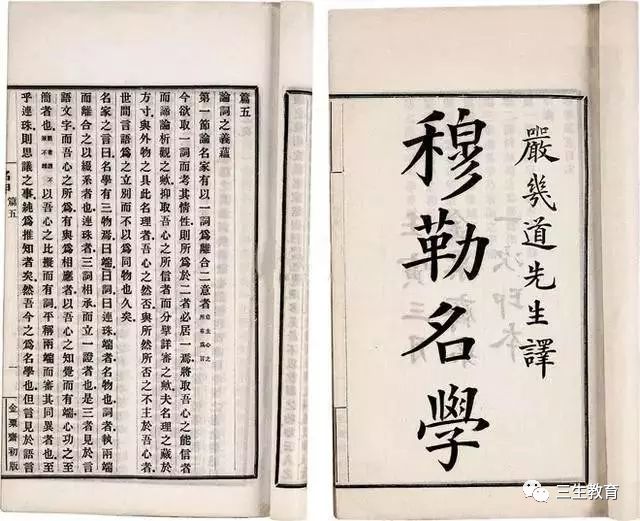 嚴幾道先生譯
穆勒名學
篇五
論詞之義蘊
第一節論名家有以一詞爲離合二意者
今欲取一詞而考其情性則所爲於二者必居一焉將取吾心之能信者
而諦論析觀之歟抑取吾心之所信者而分擘詳審之歟夫名理之藏於
方寸與外物之具此名理者吾心之然否與所然所否之不主於吾心者
世間言語爲之立別而不以爲同物也久矣
名家之言曰名學有三物焉曰端曰詞曰連珠端者名物也詞者執兩端
而離合之以綴系者也連珠者三詞相承而立一證者也是三者見於言
語文字而吾心之所爲有與爲相應者以吾心之知覺而有端心功之至
簡者也以吾心之比擬而有詞平稱兩端而審其同異者也至
乎連珠則思議之事純爲推知者矣然吾今之爲名學也但言見於語言
篇五
一
金粟齋初版
三生教育